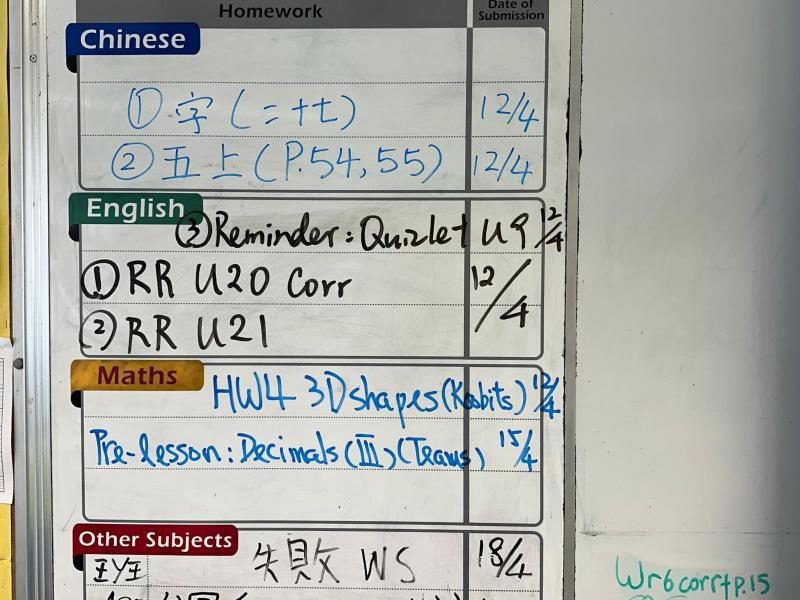 Homework Date of Submission
Chinese
① 字 (二十七) 12/4
② 五上 (P.54, 55) 12/4
English
③ Reminder: Quizlet U9 12/4
① RR U20 Corr 12/4
② RR U21
Maths
HW4 3D shapes (Koobits) 12/4
Pre-lesson: Decimals (III) (Teams) 15/4
Other Subjects
失敗 WS 18/4
Wr6 corr + p.15